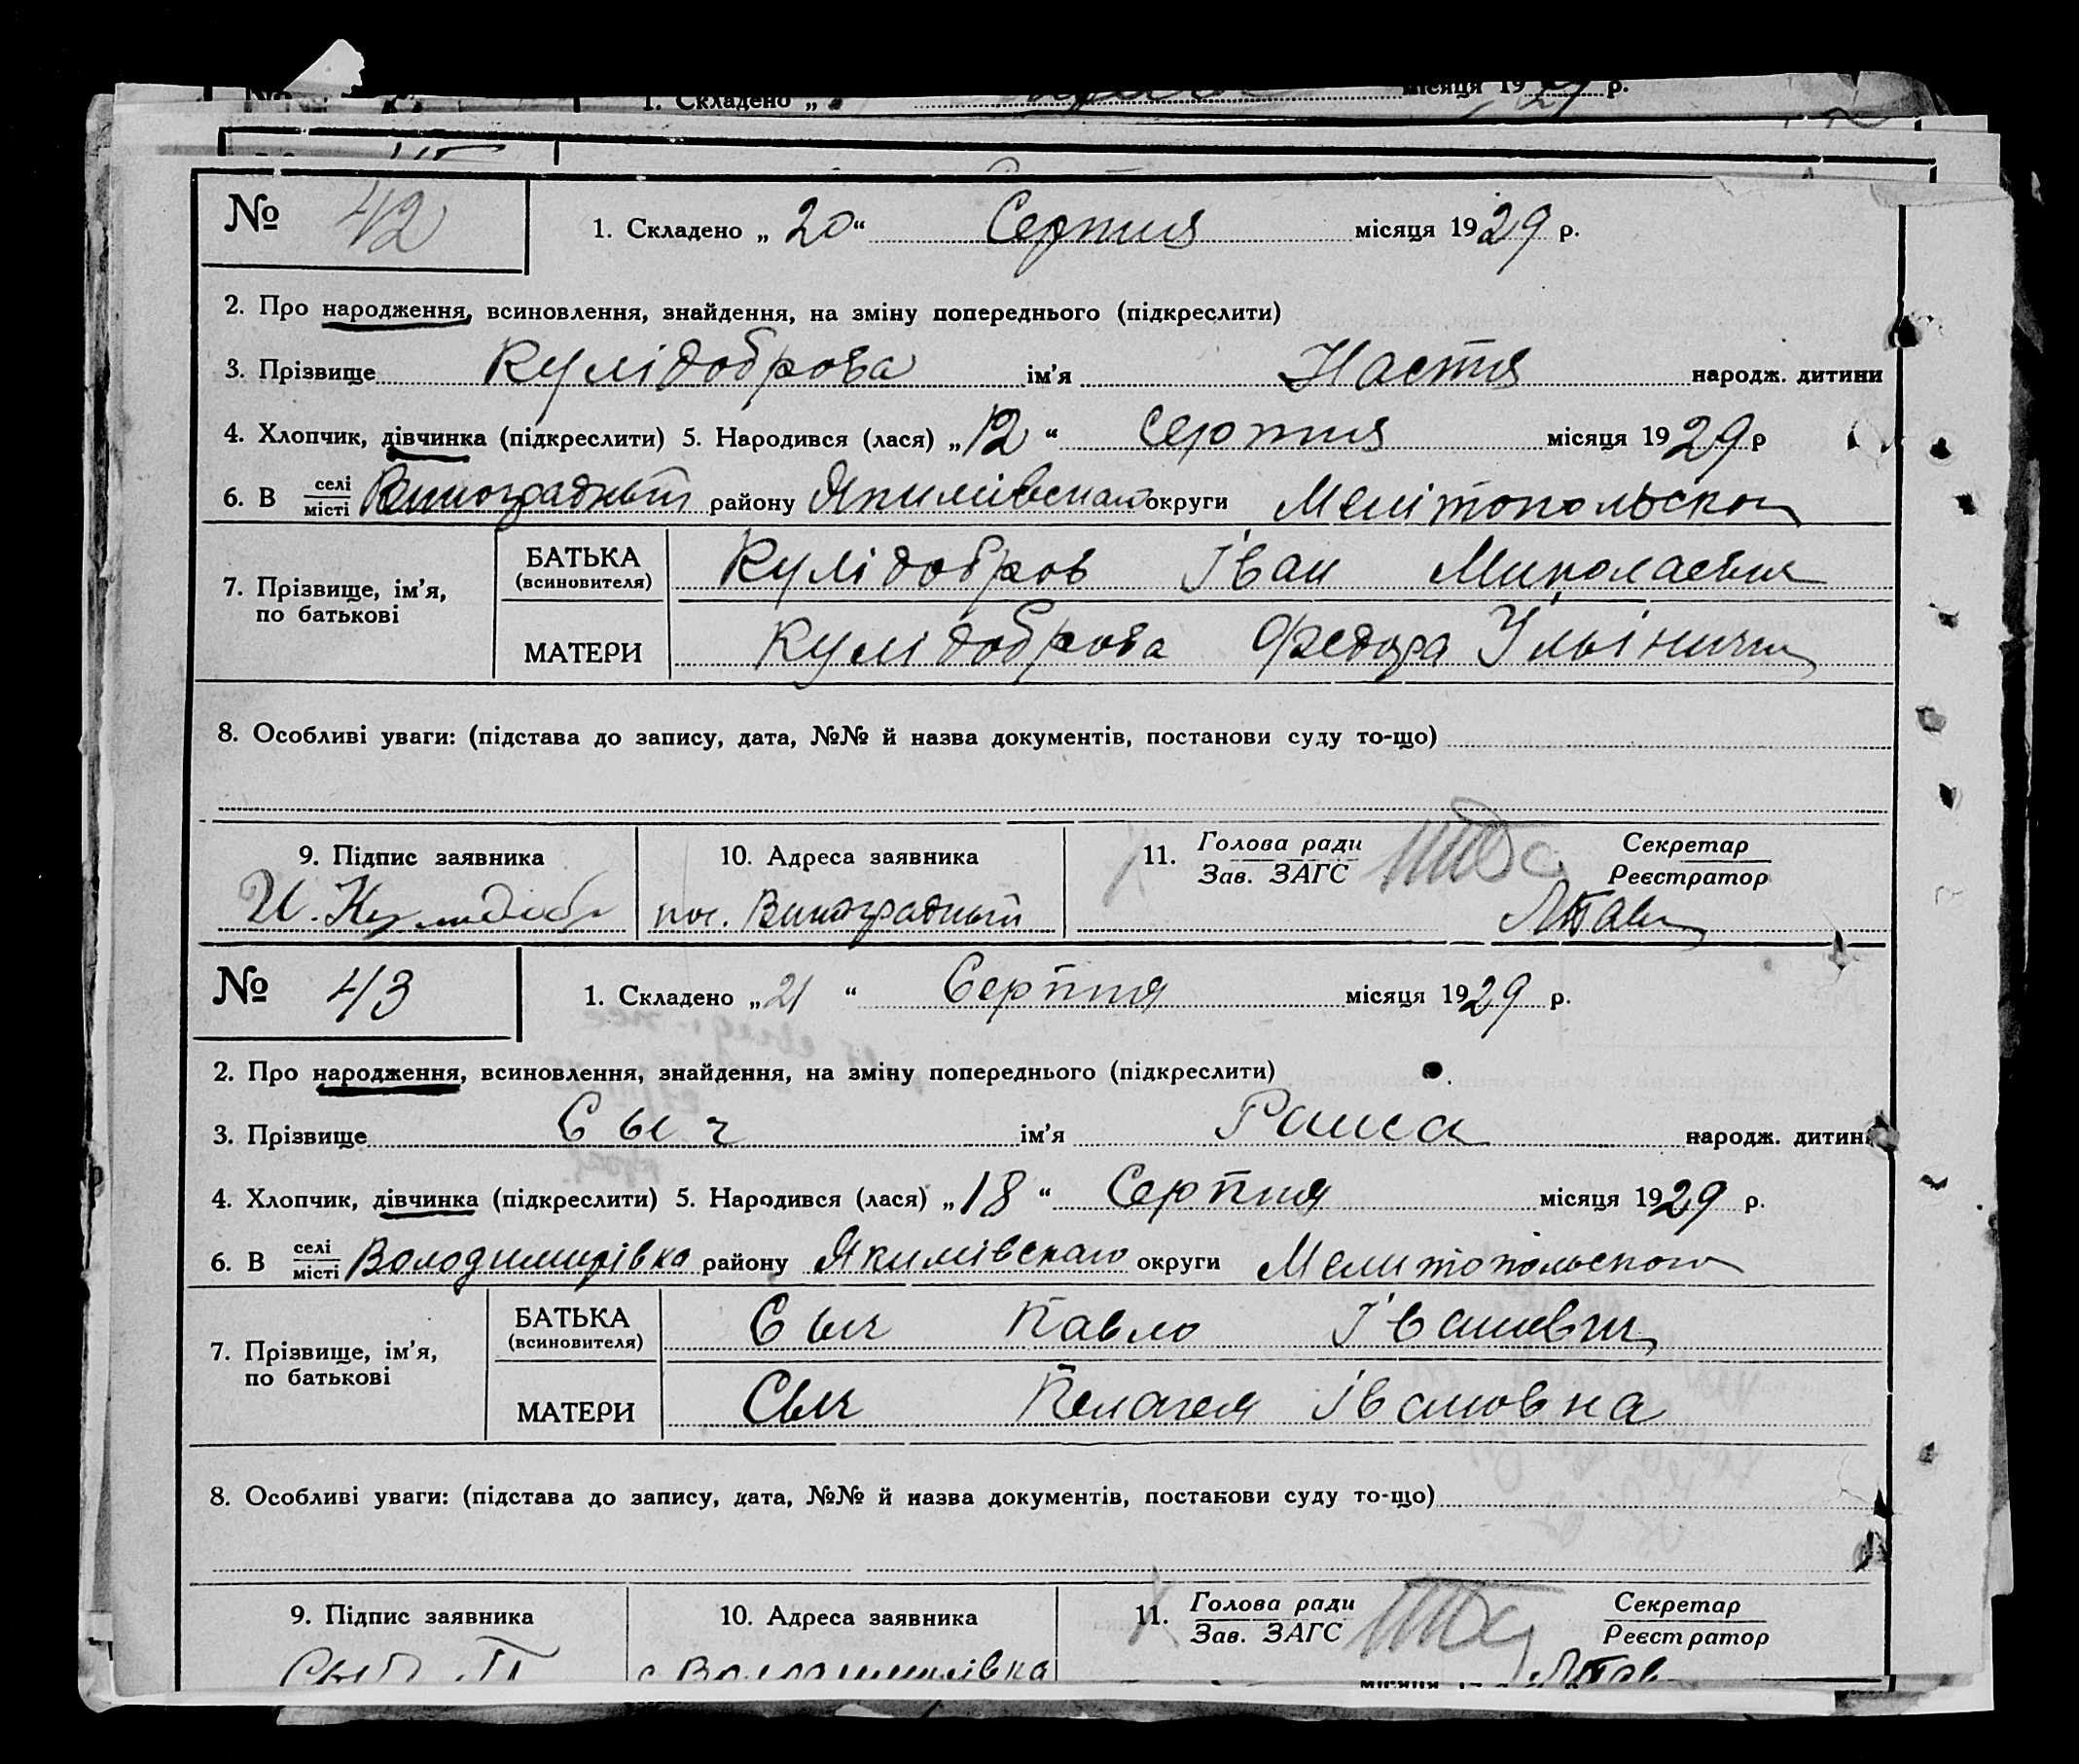 1. Складено „ місяця 1929 р.
№ 42 1. Складено „ 20 “ Серпня місяця 1929 р.
2. Про народження, всиновлення, знайдення, на зміну попереднього (підкреслити)
3. Прізвище Кулідоброва ім’я Настя народж. дитини
4. Хлопчик, дівчинка (підкреслити) 5. Народився (лася) „ 12 “ серпня місяця 1929 р
6. В селі/місті Виноградный району Якимівскаго округи Мелітопольской
7. Прізвище, ім’я, по батькові
БАТЬКА (всиновителя) Кулідобров Іван Миколаевич
МАТЕРИ Кулідоброва Федора Ульінична
8. Особливі уваги: (підстава до запису, дата, №№ й назва документів, постанови суду то-що)
9. Підпис заявника 10. Адреса заявника 11. Голова ради Зав. ЗАГС Секретар Реєстратор
И. пос. Виноградный
№ 43 1. Складено „ 21 “ Серпня місяця 1929 р.
2. Про народження, всиновлення, знайдення, на зміну попереднього (підкреслити)
3. Прізвище Сыч ім’я Раиса народж. дитини
4. Хлопчик, дівчинка (підкреслити) 5. Народився (лася) „ 18 “ Серпня місяця 1929 р.
6. В селі/місті Володимирівка району Якимівскаго округи Мелитопольского
7. Прізвище, ім’я, по батькові
БАТЬКА (всиновителя) Сыч Павло Іванович
МАТЕРИ Сыч Пелагея Івановна
8. Особливі уваги: (підстава до запису, дата, №№ й назва документів, постанови суду то-що)
9. Підпис заявника 10. Адреса заявника 11. Голова ради Зав. ЗАГС Секретар Реєстратор
с Володимирівка